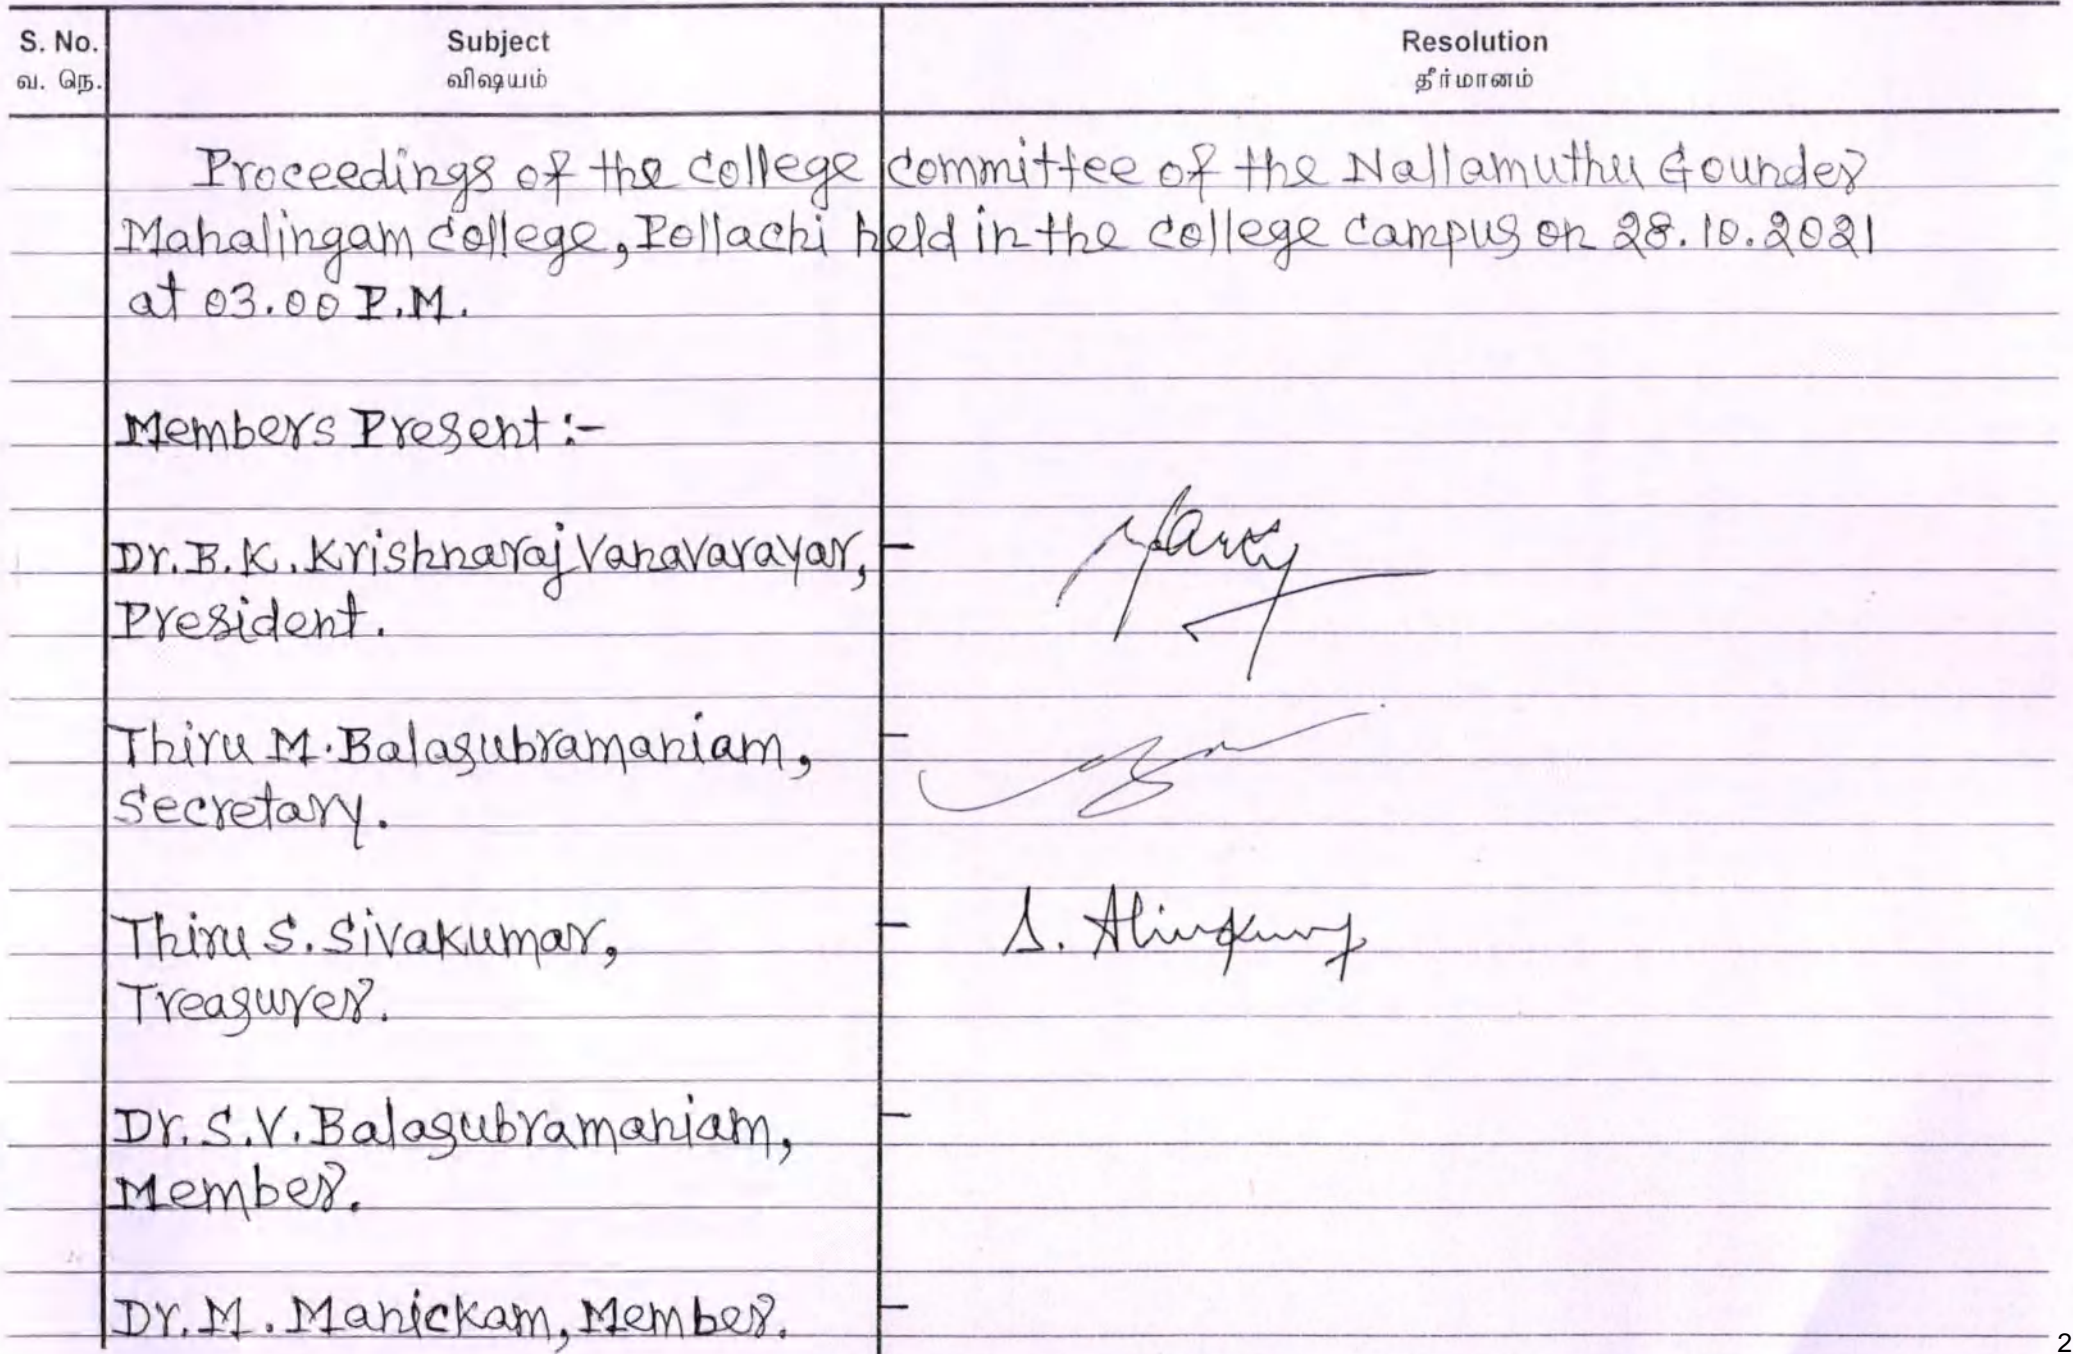 S. No. Subject Resolution
வ. நெ. விஷயம் தீர்மானம்
Proceedings of the college committee of the Nallamuthu Gounder
Mahalingam college, Pollachi held in the college campus on 28.10.2021
at 03.00 P.M.
Members Present :-
Dr. B.K. Krishnaraj Vanavarayar, -
President.
Thiru M. Balasubramaniam, -
Secretary.
Thiru S. Sivakumar, -
Treasurer.
Dr. S.V. Balasubramaniam, -
Member.
Dr. M. Manickam, Member. -
2